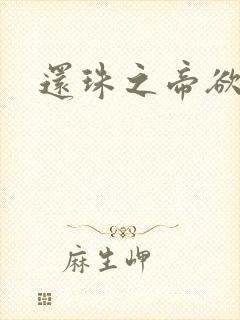 還珠之帝欲
麻生岬